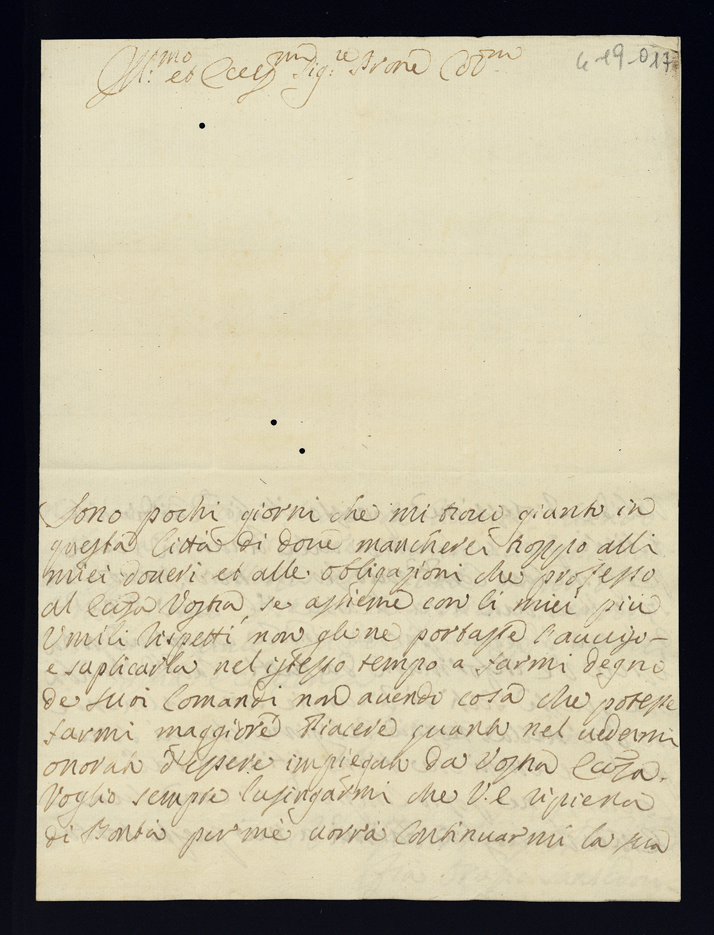 Ill:mo et Ecc:mo Sig:re Prone Col:mo
4-19-017
Sono pochi giorni che mi trovo giunto in
questa Città di dove mancherei troppo alli
miei doveri et alle obligazioni che professo
al Ecc:za Vostra se assieme con li miei più
Umili rispetti non gli ne portasse l'avviso
e suplicarla nel istesso tempo a farmi degno
de suoi Comandi non avendo cosa che potesse
farmi maggiore Piacere quanto nel vedermi
onorato d'essere impiegato da Vostra Ecc:za.
Voglio sempre lusingarmi che V.E. ripiena
di Bontà per me vorrà Continuarmi la sua